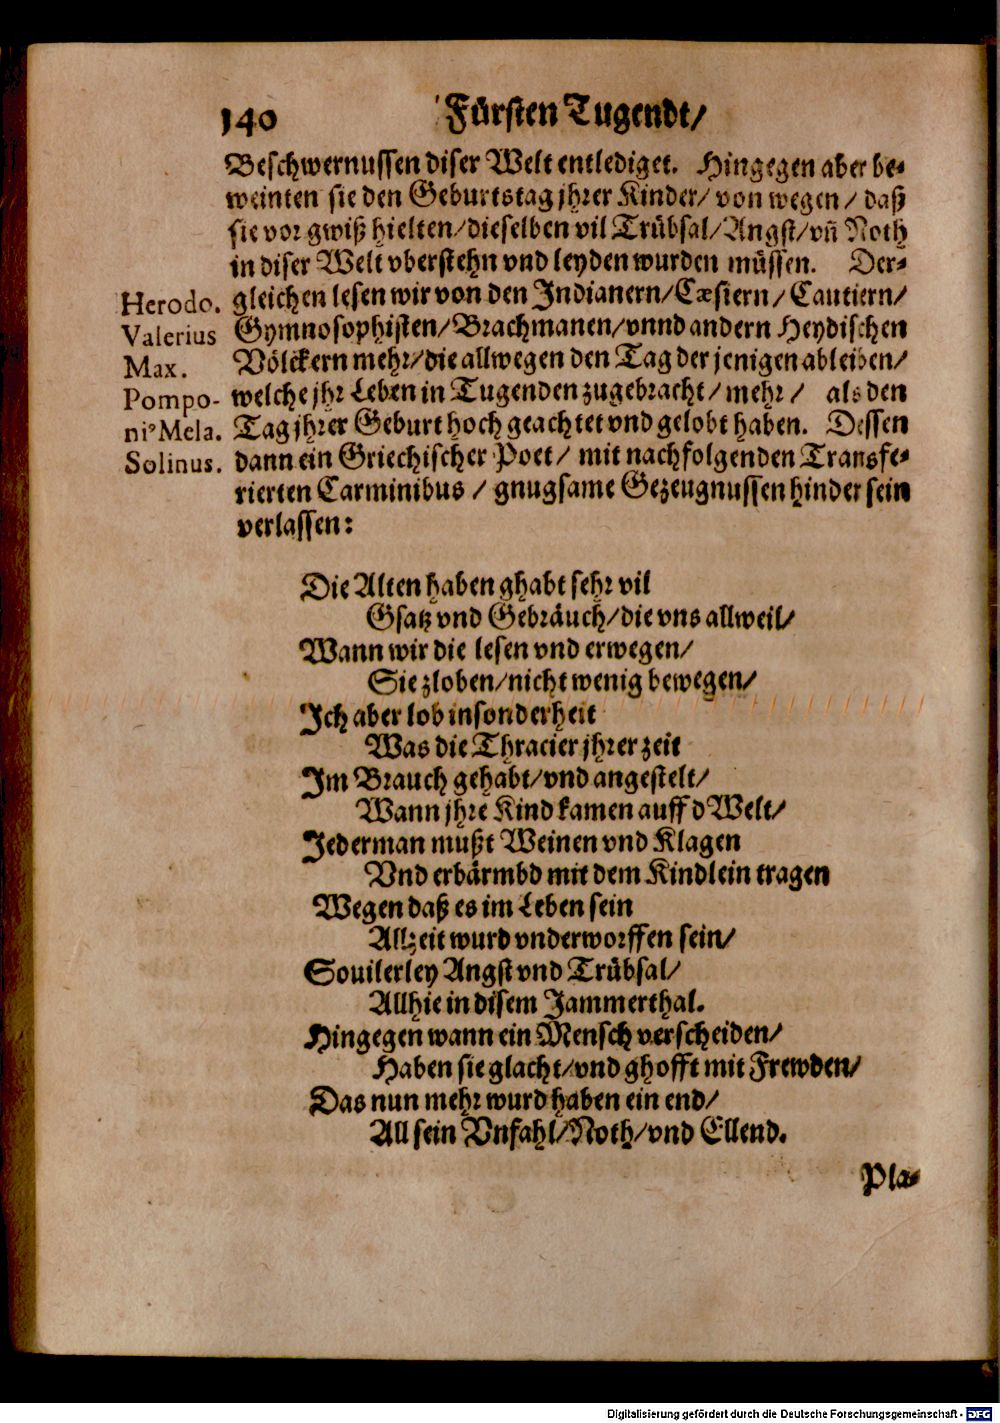 140 Fürsten Tugendt/
Beschwernussen diser Welt entlediget. Hingegen aber be-
weinten sie den Geburtstag jhrer Kinder/ von wegen/ daß
sie vor gwiß hielten/dieselben vil Trübsal/Angst/vñ Noth
in diser Welt vberstehn vnd leyden wurden müssen. Der-
gleichen lesen wir von den Indianern/Cæsiern/Cautiern/
Gymnosophisten/Brachmanen/vnnd andern Heydischen
Völckern mehr/die allwegen den Tag der jenigen ableiben/
welche jhr Leben in Tugenden zugebracht/mehr/ als den
Tag jhrer Geburt hoch geachtet vnd gelobt haben. Dessen
dann ein Griechischer Poet/ mit nachfolgenden Transfe-
rierten Carminibus/ gnugsame Gezeugnussen hinder sein
verlassen:
Herodo.
Valerius
Max.
Pompo-
niꝰ Mela.
Solinus.
Die Alten haben ghabt sehr vil
Gsatz vnd Gebräuch/die vns allweil/
Wann wir die lesen vnd erwegen/
Sie zloben/nicht wenig bewegen/
Ich aber lob insonderheit
Was die Thracier jhrer zeit
Im Brauch gehabt/vnd angestelt/
Wann jhre Kind kamen auff d Welt/
Jederman mußt Weinen vnd Klagen
Vnd erbärmbd mit dem Kindlein tragen
Wegen daß es im Leben sein
Allzeit wurd vnderworffen sein/
Souilerley Angst vnd Trübsal/
Allhie in disem Jammerthal.
Hingegen wann ein Mensch verscheiden/
Haben sie glacht/vnd ghofft mit Frewden/
Das nun mehr wurd haben ein end/
All sein Vnfahl/Noth/vnd Ellend.
Pla-
Digitalisierung gefördert durch die Deutsche Forschungsgemeinschaft - DFG